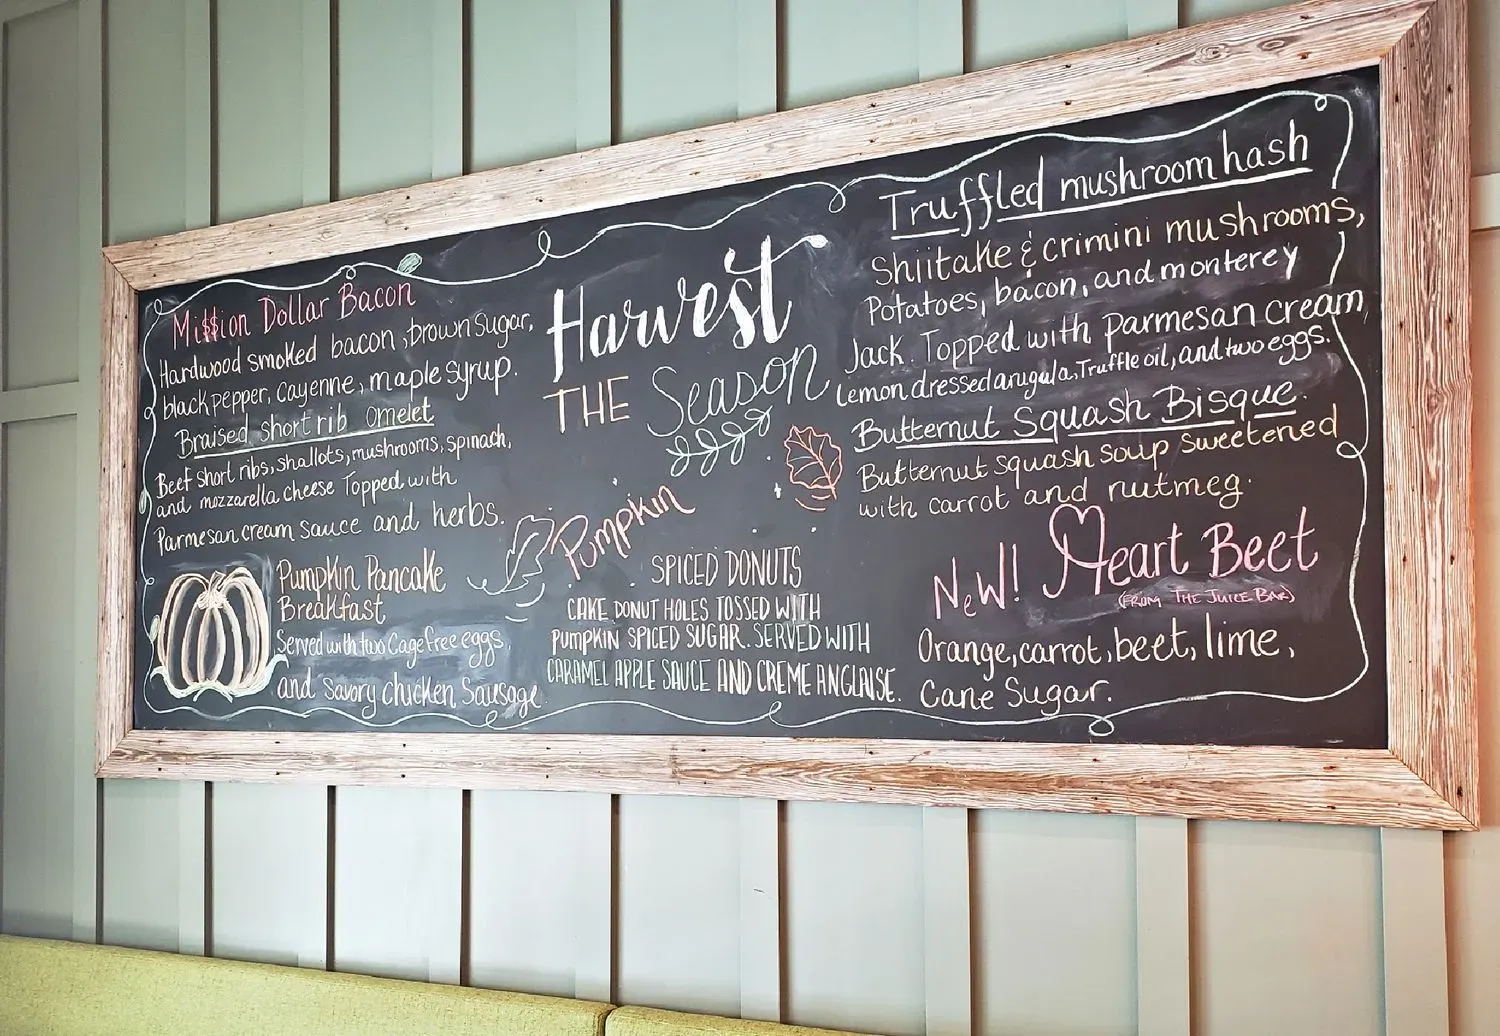 Mi$$ion Dollar Bacon
Hardwood smoked bacon, brown sugar,
black pepper, cayenne, maple syrup.
Braised short rib omelet
Beef short ribs, shallots, mushrooms, spinach,
and mozzarella cheese Topped with
Parmesan cream sauce and herbs.
Pumpkin Pancake
Breakfast
Served with two Cage free eggs,
and savory chicken Sausage
Harvest
THE Season
Pumpkin
SPICED DONUTS
CAKE DONUT HOLES TOSSED WITH
PUMPKIN SPICED SUGAR. SERVED WITH
CARAMEL APPLE SAUCE AND CREME ANGLAISE.
Truffled mushroom hash
Shiitake & crimini mushrooms,
Potatoes, bacon, and monterey
Jack. Topped with parmesan cream
Lemon dressed arugula, Truffle oil, and two eggs.
Butternut Squash Bisque.
Butternut squash soup sweetened
with carrot and nutmeg.
NeW! Heart Beet
(FROM THE JUICE BAR)
Orange, carrot, beet, lime,
Cane Sugar.